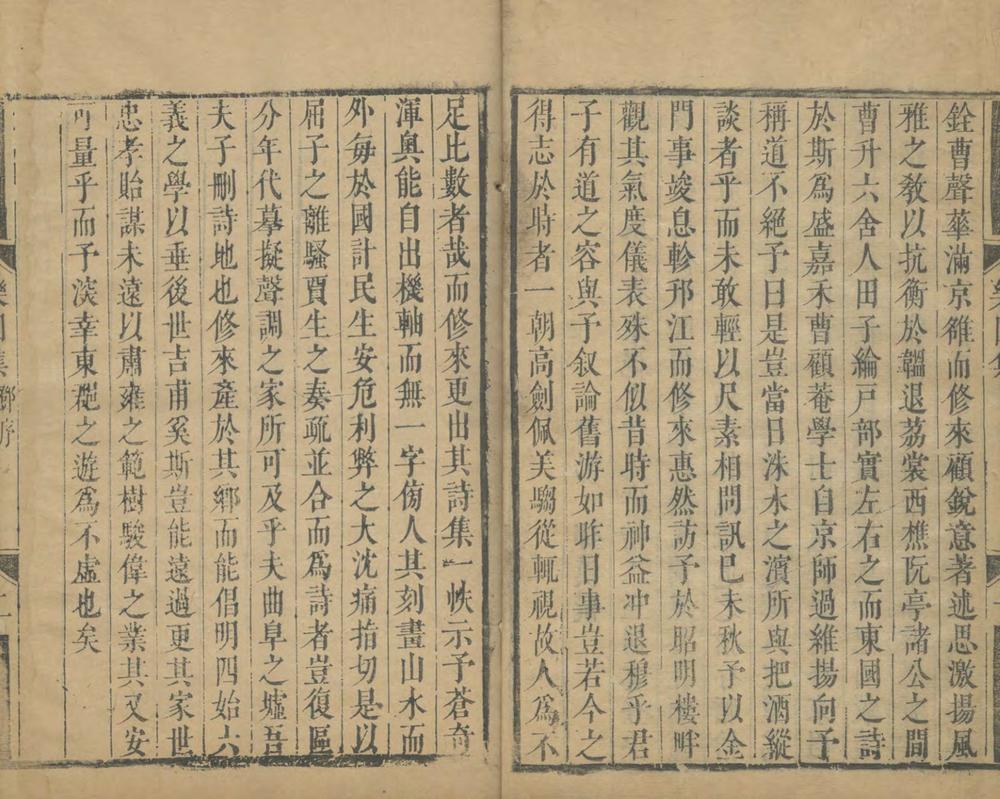 銓曹聲華滿京雒而修來顧銳意著述思激揚風
雅之敎以抗衡於韞退荔裳西樵阮亭諸公之間
曹升六舍人田子綸戸部實左右之而東國之詩
於斯爲盛嘉禾曹顧菴學士自京師過維揚向予
稱道不絕予曰是豈當日洙水之濱所與把酒縱
談者乎而未敢輕以尺素相問訊巳未秋予以金
門事竣息軫邗江而修來惠然訪予於昭明樓畔
觀其氣度儀表殊不似昔時而神益冲退穆乎君
子有道之容與予叙論舊游如昨日事豈若今之
得志於時者一朝高劍佩美騶從輒視故人爲不
足比數者哉而修來更出其詩集一帙示予蒼奇
渾奥能自出機軸而無一字傍人其刻畫山水而
外每於國計民生安危利弊之大沈痛指切是以
屈子之離騷賈生之奏疏並合而爲詩者豈復區
分年代摹擬聲調之家所可及乎夫曲阜之墟吾
夫子刪詩地也修來產於其鄉而能倡明四始六
義之學以垂後世吉甫奚斯豈能遠過更其家世
忠孝貽謀未遠以肅雍之範樹駿偉之業其又安
可量乎而予淡幸東巵之遊爲不虛也矣
樂圃集 鄧序
二